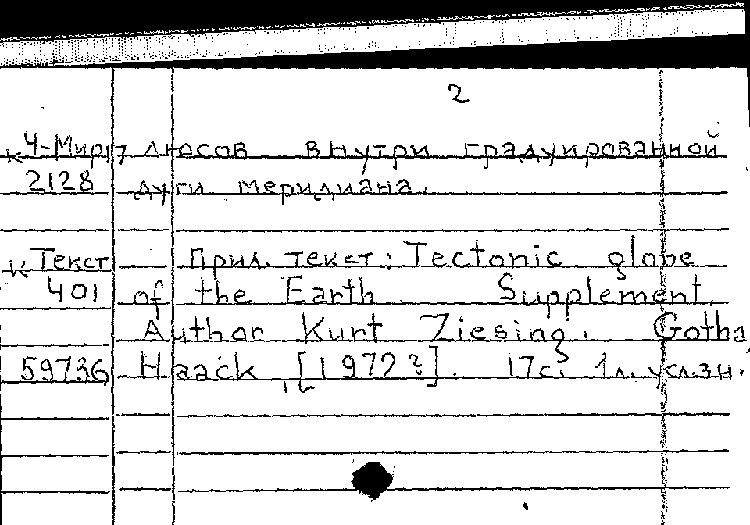 2
К4-Мир/7 люсов внутри градуированной
2128 дуги меридиана.
К Текст Прил. текст: Tectonic globe
401 of the Earth Supplement.
Author Kurt Ziesing. Gotha
59736 Haack, [1972?]. 17с. 1л. усл.зн.